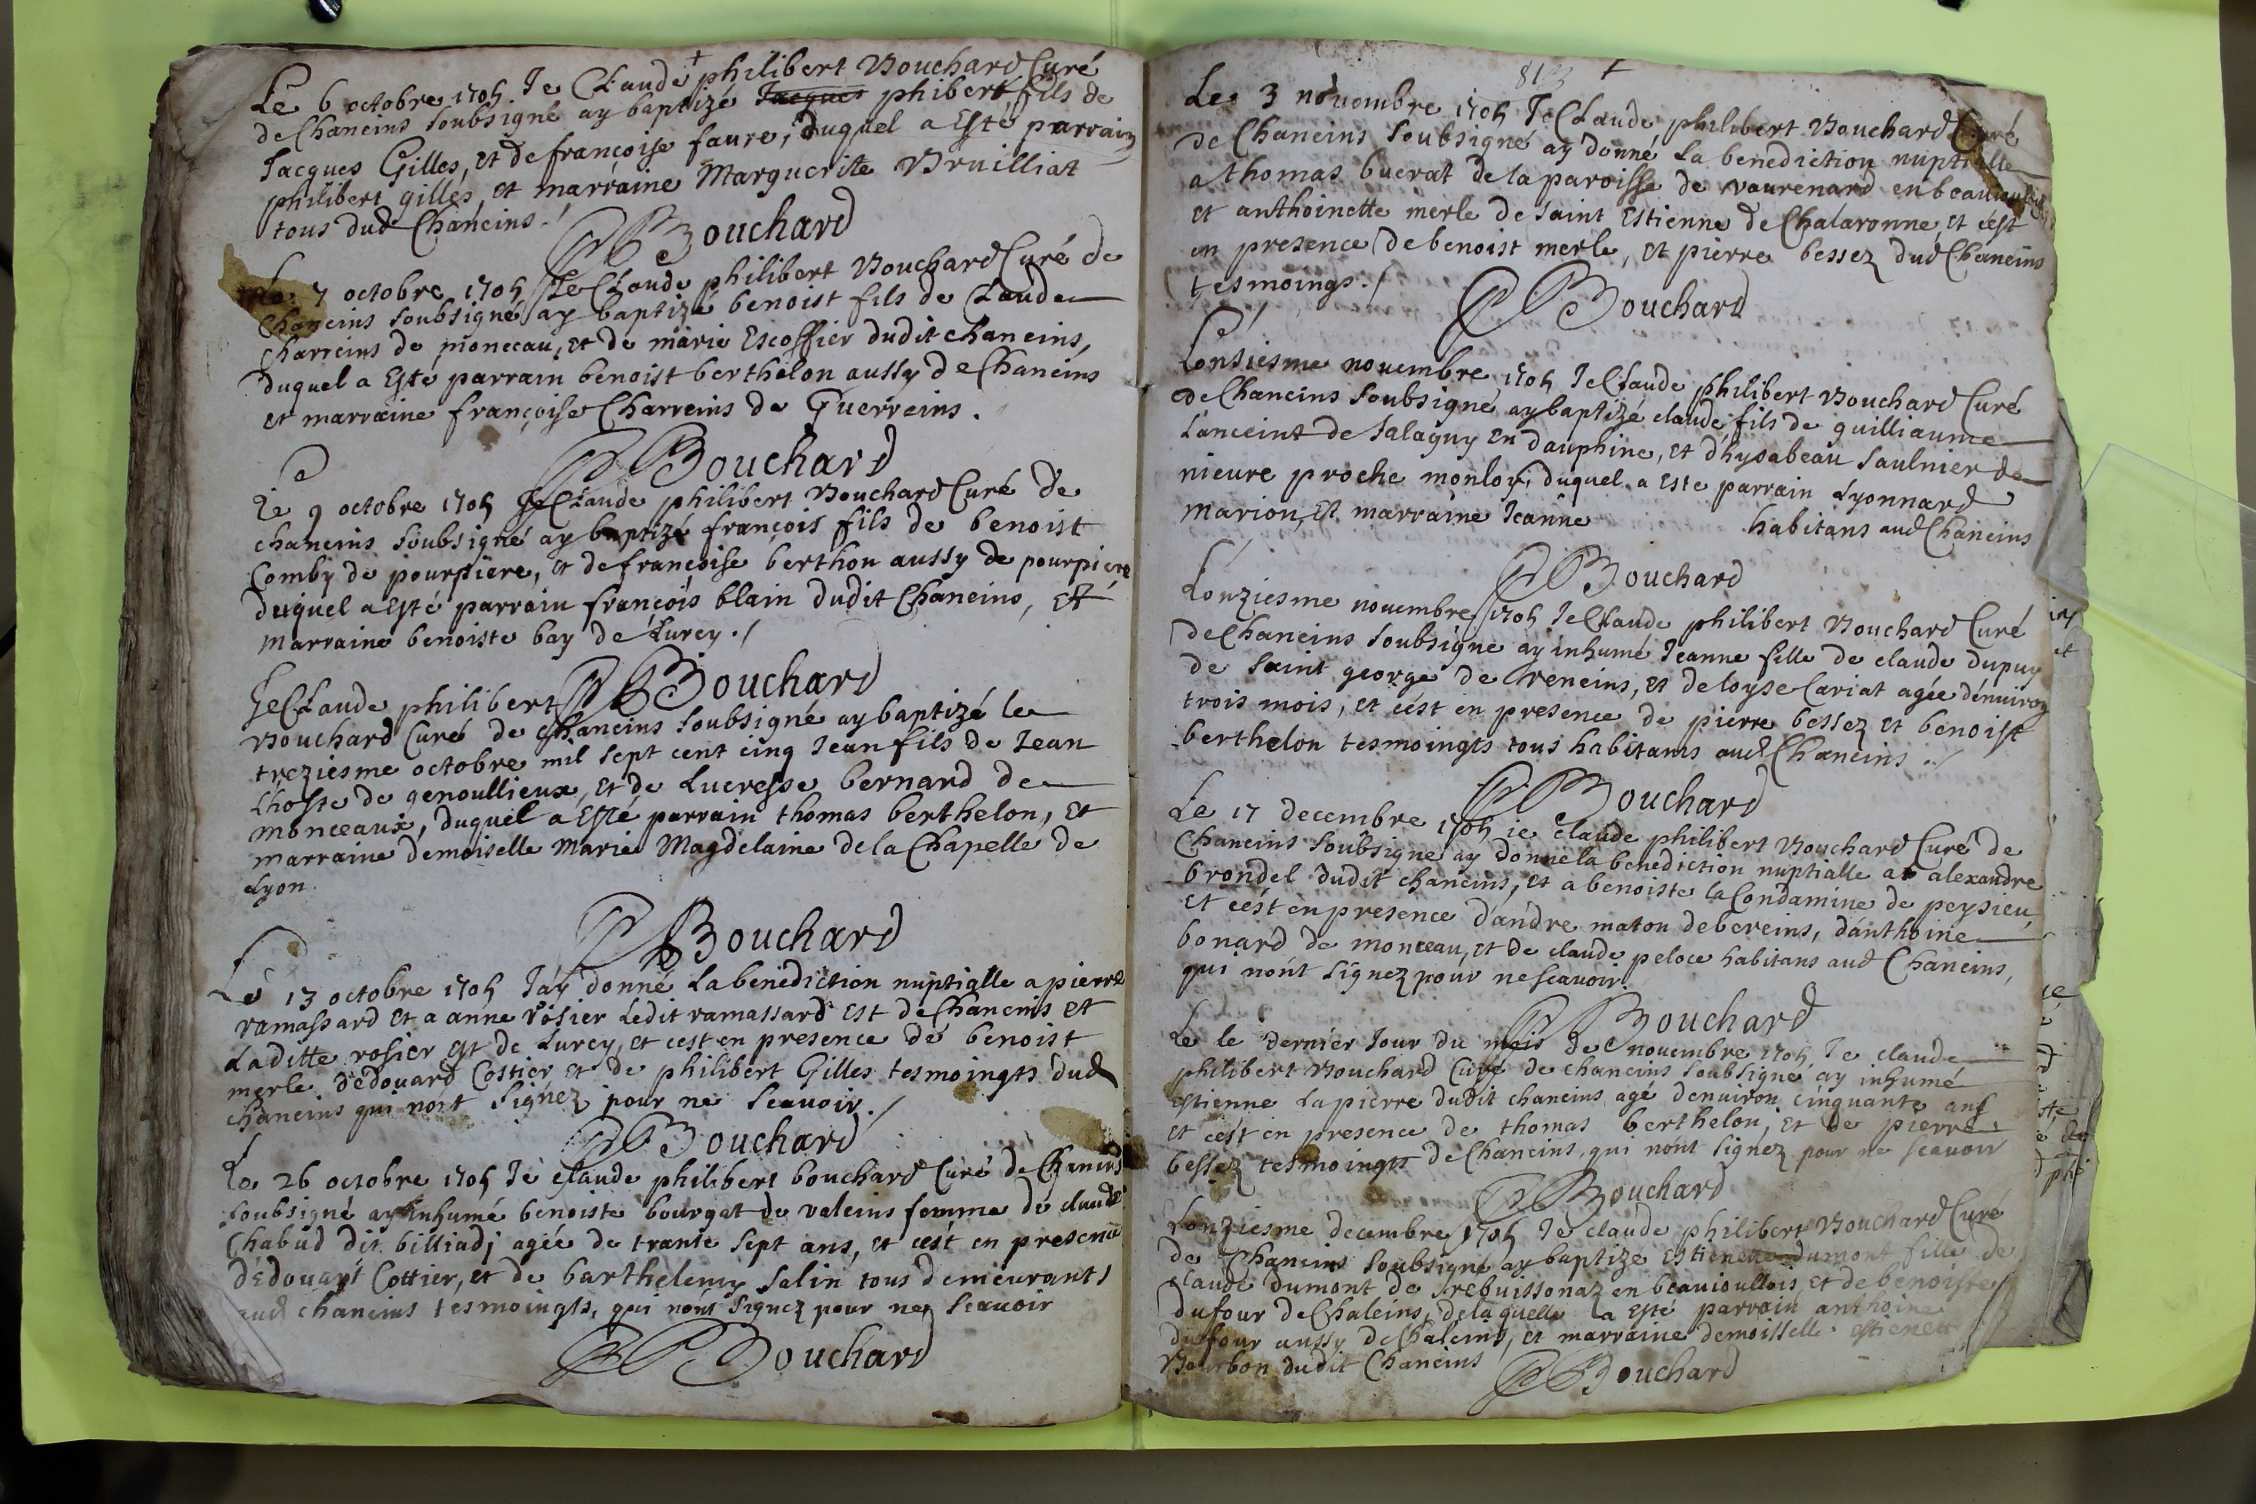 Le 6 octobre 1705 Je Claude philibert Bouchard Curé
de Chaneins soubsigné ay baptizé Jacques phibert, fils de
Jacques Gilles, et de françoise faure, duquel a esté parrain
philibert gilles, et marraine Marguerite Bruilliat
tous dud Chaneins ./
Bouchard
Le 7 octobre 1705 Je Claude philibert Bouchard Curé de
Chaneins soubsigné ay baptizé benoist fils de Claude
Charreins de monceau, et de marie Escoffier dudit chaneins,
duquel a esté parrain benoist berthelon aussy de Chaneins
et marraine françoise Charreins de Guerreins .
Bouchard
Le 9 octobre 1705 Je Claude philibert Bouchard Curé de
chaneins soubsigné ay baptizé françois fils de benoist
Comby de pourpiere, et de francoise berthon aussy de pourpiere
duquel a esté parrain françois blain dudit Chaneins, et
marraine benoiste bay de Lurcy ./
Bouchard
Je Claude philibert
Bouchard Curé de Chaneins soubsigné ay baptizé le
treziesme octobre mil sept cent cinq Jean fils de Jean
Lhoste de genoullieux, et de Lucresse bernard de
monceaux, duquel a esté parrain thomas berthelon, et
marraine demoiselle Marie Magdelaine de la Chapelle de
Lyon.
Bouchard
Le 13 octobre 1705 J'ay donné La benediction nuptialle a pierre
ramassard et a anne rosier Ledit ramassard est de Chaneins et
Laditte rosier est de Lurcy, et cest en presence de benoist
merle d'edouard Costier et de philibert Gilles tesmoingts dud
chaneins qui n'ont signez pour ne scauoir ./
Bouchard
Le 26 octobre 1705 Je Claude philibert bouchard Curé de Chaneins
soubsigné ay inhumé benoiste bourgat de valeins femme de claude
Chabud dit billiadj agée de trante sept ans, et c'est en presence
d'edouart Cottier, et de barthelemy salin tous demeurants
aud chaneins tesmoingts, qui n'ont signez pour ne scauoir
Bouchard
81
Le 3 nouombre 1705 Je Claude philibert Bouchard Curé
de Chaneins soubsigné ay donné La benediction nuptialle
a thomas buerat de la paroisse de vaurenard en
et anthoinette merle de saint Estienne de Chalaronne, et c'est
en presence de benoist merle, et pierre bessez dud Chaneins
tesmoings ./
Bouchard
L'onsiesme nouembre 1705 Je Claude philibert Bouchard Curé
de Chaneins soubsigné ay baptizé claude fils de guilliaume
Lanceint de salagny en dauphine, et d'hysabeau saulnier de
nieure proche duquel a este parrain Lyonnard
marion, et marraine Jeanne habitans aud Chaneins
Bouchard
L'onziesme nouembre 1705 Je Claude philibert Bouchard Curé
de Chaneins soubsigné ay inhumé Jeanne fille de claude dupuy
de saint george de reneins, et de loyse Cariat agée d'enuiron
trois mois, et c'est en presence de pierre bessez et benoist
berthelon tesmoingts tous habitants aud Chaneins ./
Bouchard
Le 17 decembre 1705 ie claude philibert Bouchard Curé de
Chaneins soubsigné ay donné la benediction nuptialle a alexandre
brondel dudit chaneins, et a benoiste la Condamine de peysieu,
et c'est en presence d'andre maton de bereins, d'anthoine
bonard de monceau, et de claude peloce habitans aud Chaneins,
qui n'ont signez pour ne scauoir.
Bouchard
Le le dernier Jour du mois de nouembre 1705 Je claude
philibert Bouchard Curé de chaneins soubsigné ay inhumé
estienne Lapierre dudit chaneins agé d'enuiron cinquante ans
et c'est en presence de thomas berthelon, et de pierre
bessez tesmoingts de Chaneins, qui n'ont signez pour ne scauoir
Bouchard
L'onziesme decembre 1705 Je claude philibert Bouchard Curé
de Chaneins soubsigné ay baptize Estienette dumont fille de
claude dumont de en beauioullois et de benoiste
dufour de Chaleins, de laquelle a esté parrain anthoine
dufour aussy de Chaleins, et marraine demoiselle
Bourbon dudit Chaneins
Bouchard